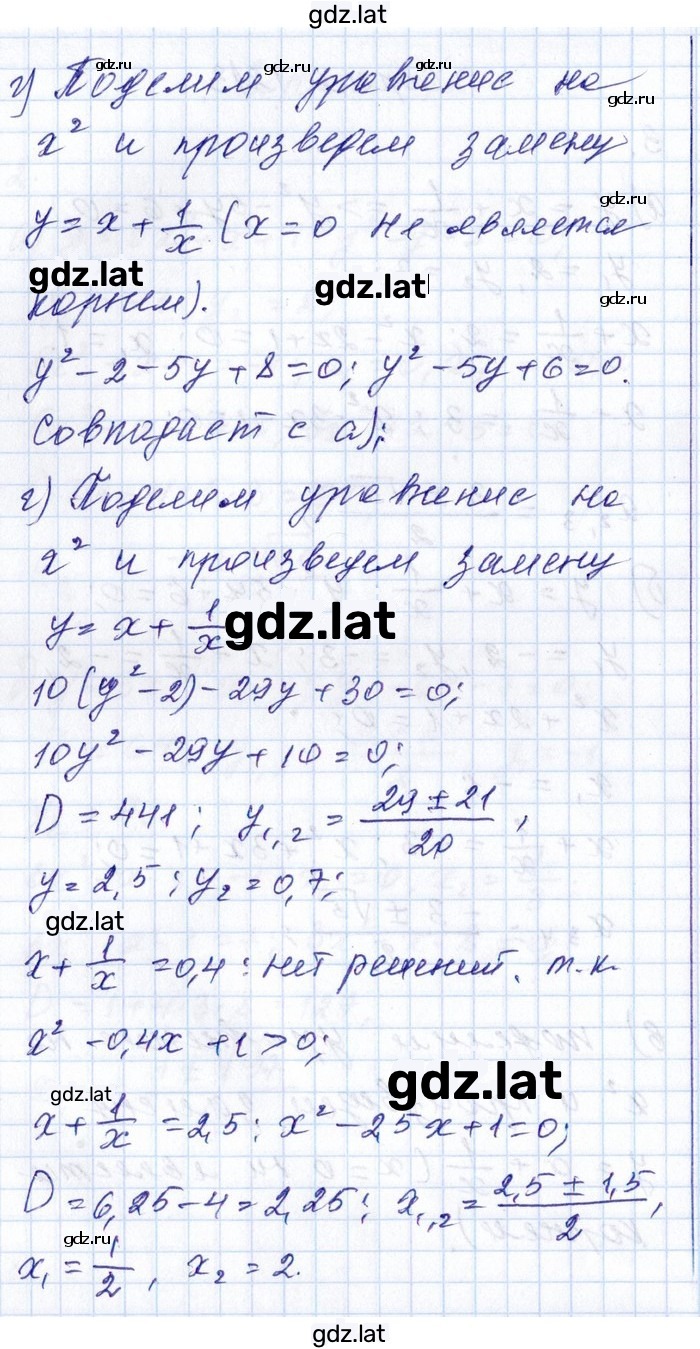 gdz.lat
gdz.ru gdz.ru
г) Поделим уравнение на
gdz.ru
x² и произведем замену
gdz.ru
y = x + 1/x (x = 0 не является
gdz.lat gdz.lat gdz.ru
корнем).
y² - 2 - 5y + 8 = 0; y² - 5y + 6 = 0.
Совпадает с а);
г) Поделим уравнение на
x² и произведем замену
y = x + 1/x gdz.lat
10(y² - 2) - 29y + 30 = 0;
10y² - 29y + 10 = 0;
D = 441; y₁,₂ = (29 ± 21)/20,
y = 2,5; y₂ = 0,7;
gdz.lat
x + 1/x = 0,4: нет решений, т.к.
x² - 0,4x + 1 > 0;
gdz.lat gdz.lat
x + 1/x = 2,5: x² - 2,5x + 1 = 0;
D = 6,25 - 4 = 2,25; x₁,₂ = (2,5 ± 1,5)/2,
gdz.ru
x₁ = 1/2, x₂ = 2.
gdz.lat